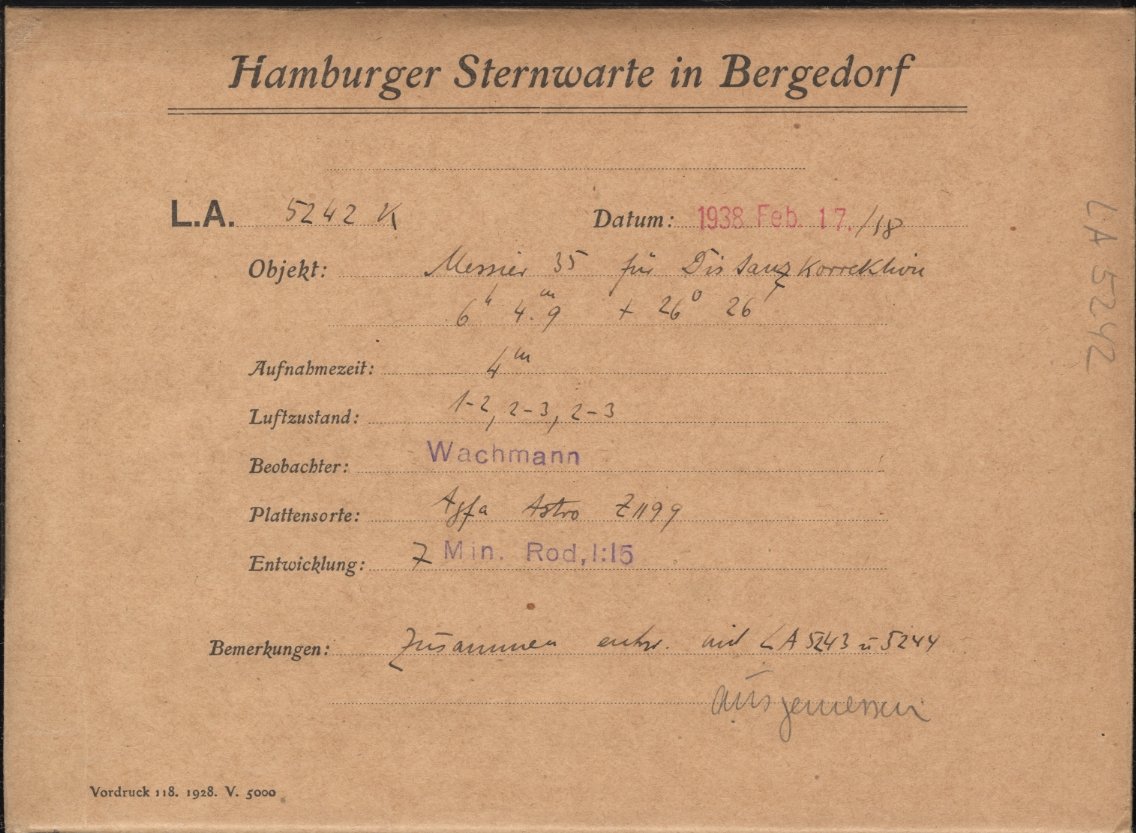 Hamburger Sternwarte in Bergedorf
L.A. 5242 K Datum: 1938 Feb. 17./18
Objekt: Messier 35 für Distanzkorrektion
6ʰ 4.ᵐ9 + 26° 26'
Aufnahmezeit: 4ᵐ
Luftzustand: 1-2, 2-3, 2-3
Beobachter: Wachmann
Plattensorte: Agfa Astro Z1199
Entwicklung: 7 Min. Rod, 1:15
Bemerkungen: Zusammen entw. mit LA 5243 u 5244
ausgemessen
Vordruck 118. 1928. V. 5000
LA 5242